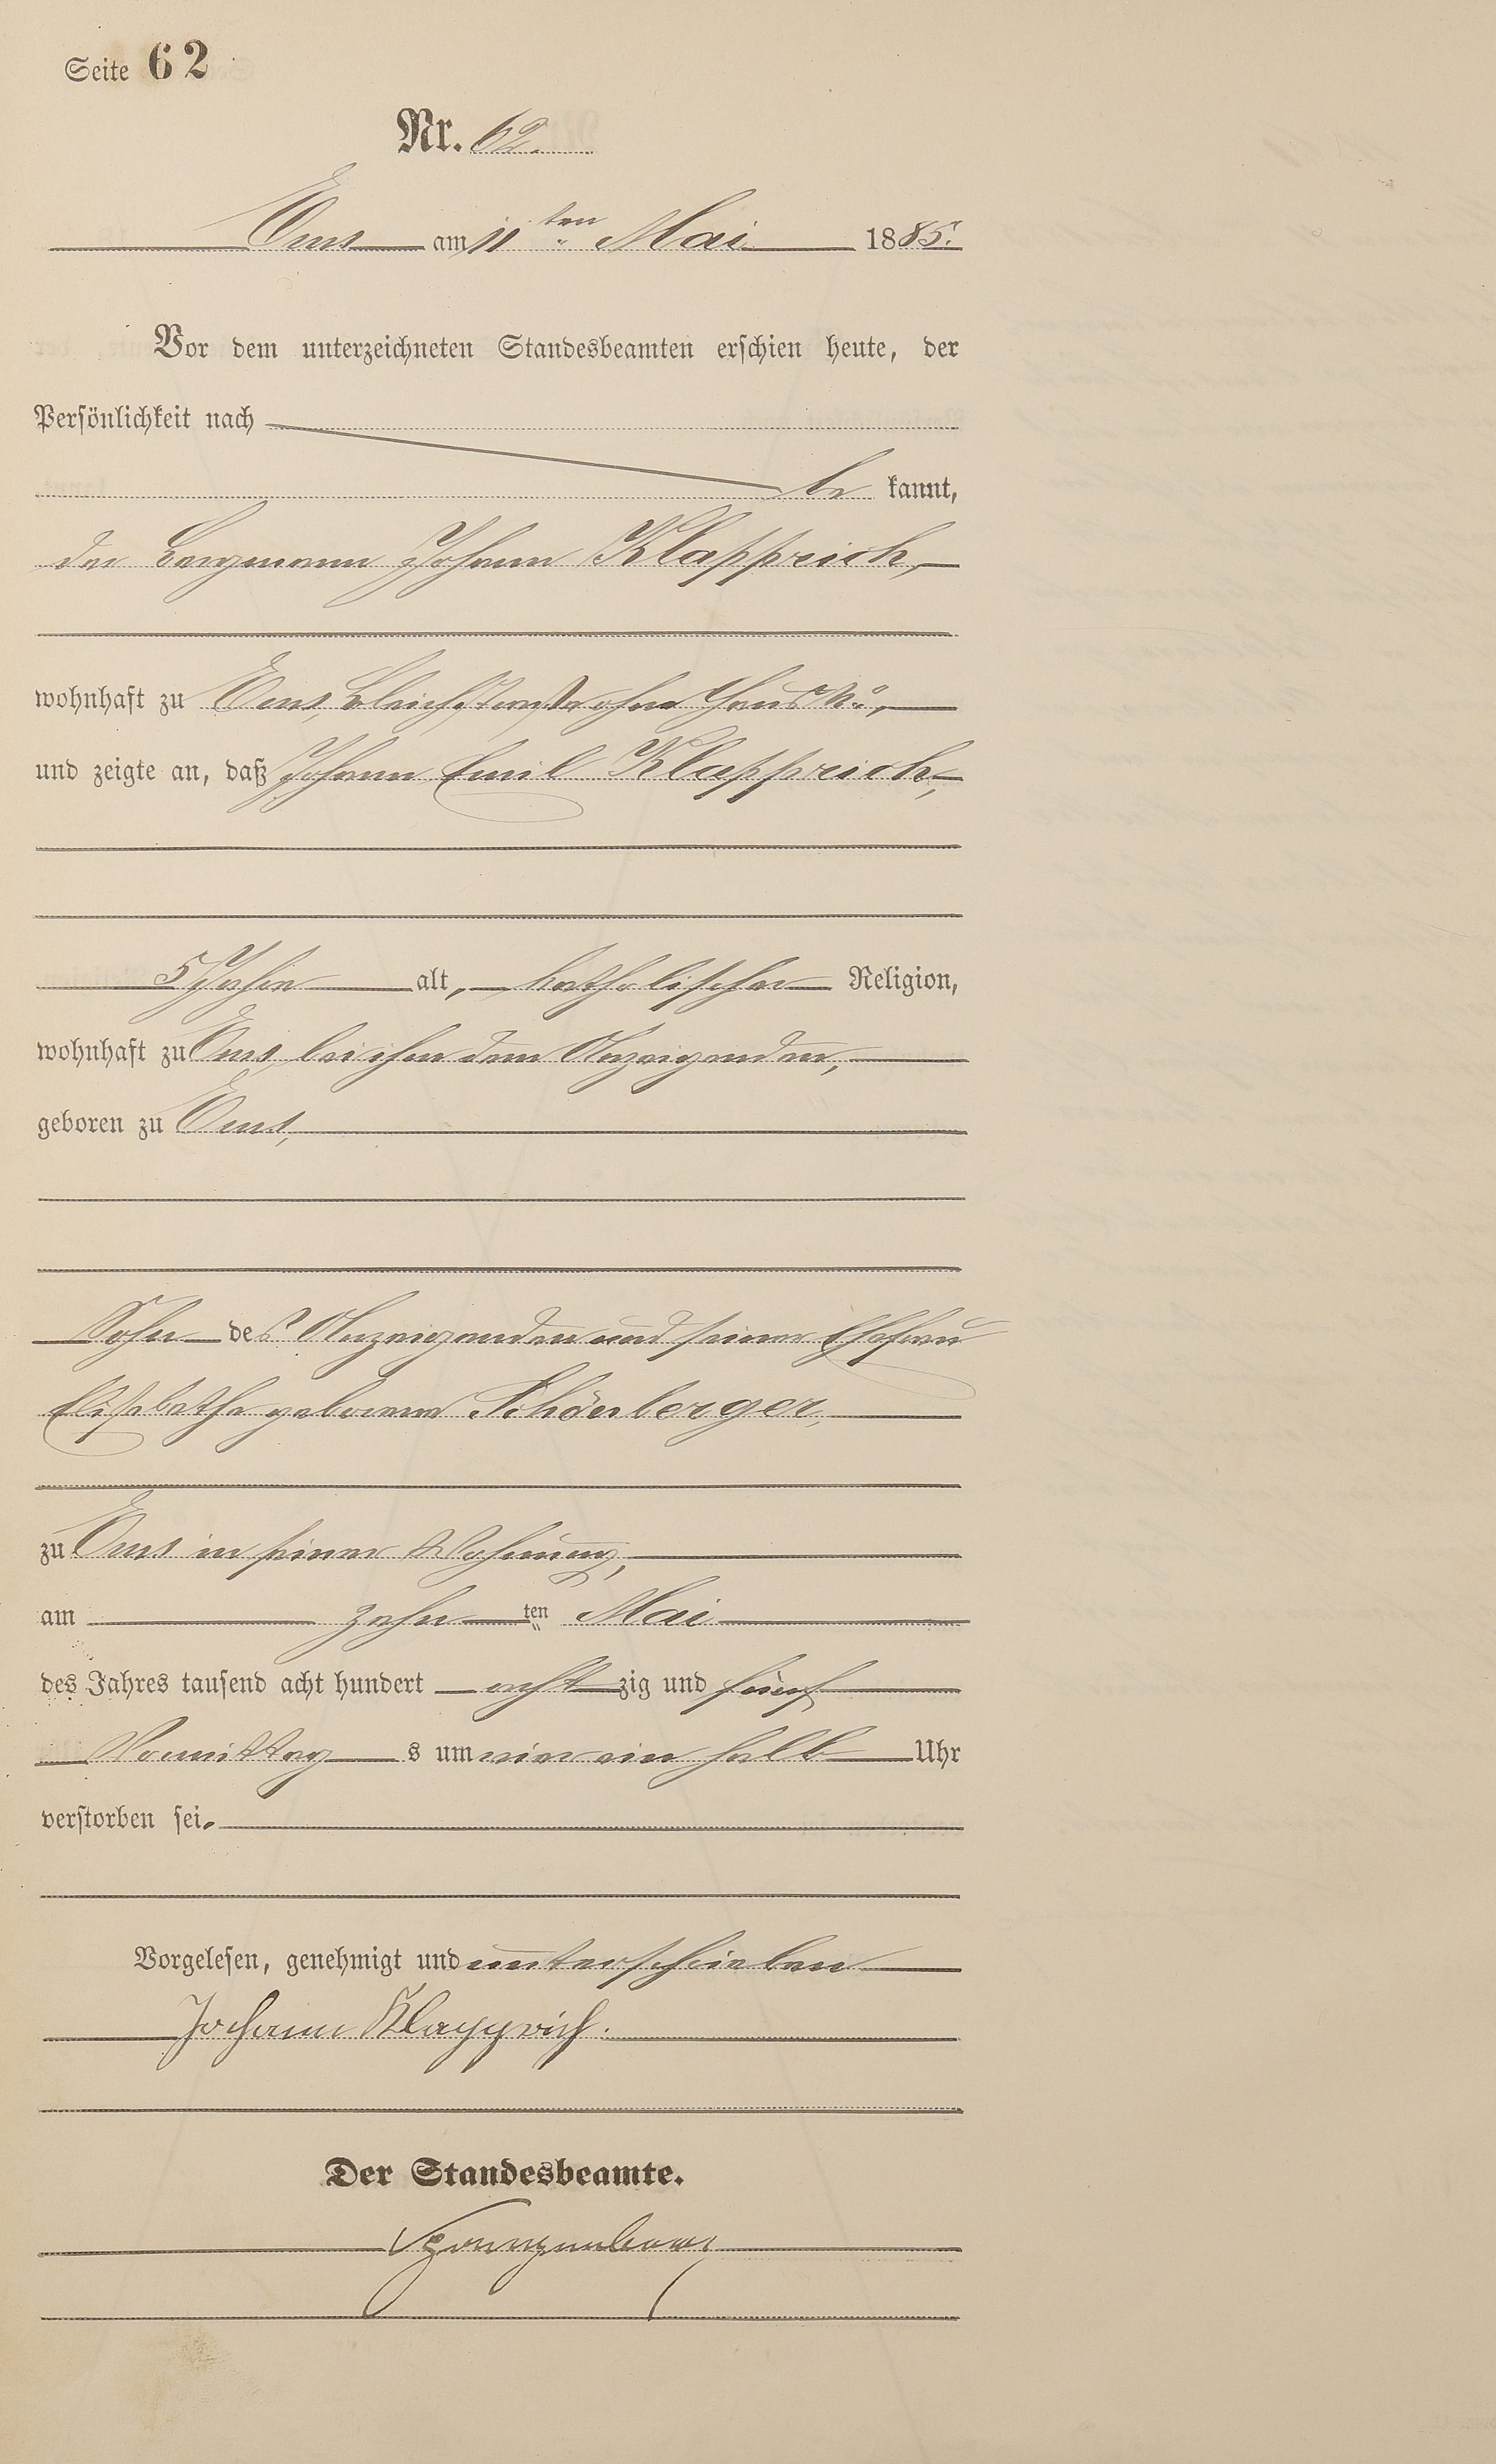 Seite 62
Nr. 62.
Ems am 11ten Mai 1885.
Vor dem unterzeichneten Standesbeamten erschien heute, der
Persönlichkeit nach
be kannt,
der Bergmann Johann Klapprich,
wohnhaft zu Ems, Bleichstraße ohne Haus No,
und zeigte an, daß Johann Emil Klapprich,
5 Jahre alt, katholischer Religion,
wohnhaft zu Ems bei ihm dem Anzeigenden,
geboren zu Ems,
Sohn des Anzeigenden und seiner Ehefrau
Elisabetha geborene Schönberger,
zu Ems in seiner Wohnung,
am zehn ten Mai
des Jahres tausend acht hundert acht zig und fünf
Vormittag s um vier ein halb Uhr
verstorben sei.
Vorgelesen, genehmigt und unterschrieben
Johann Klapprich.
Der Standesbeamte.